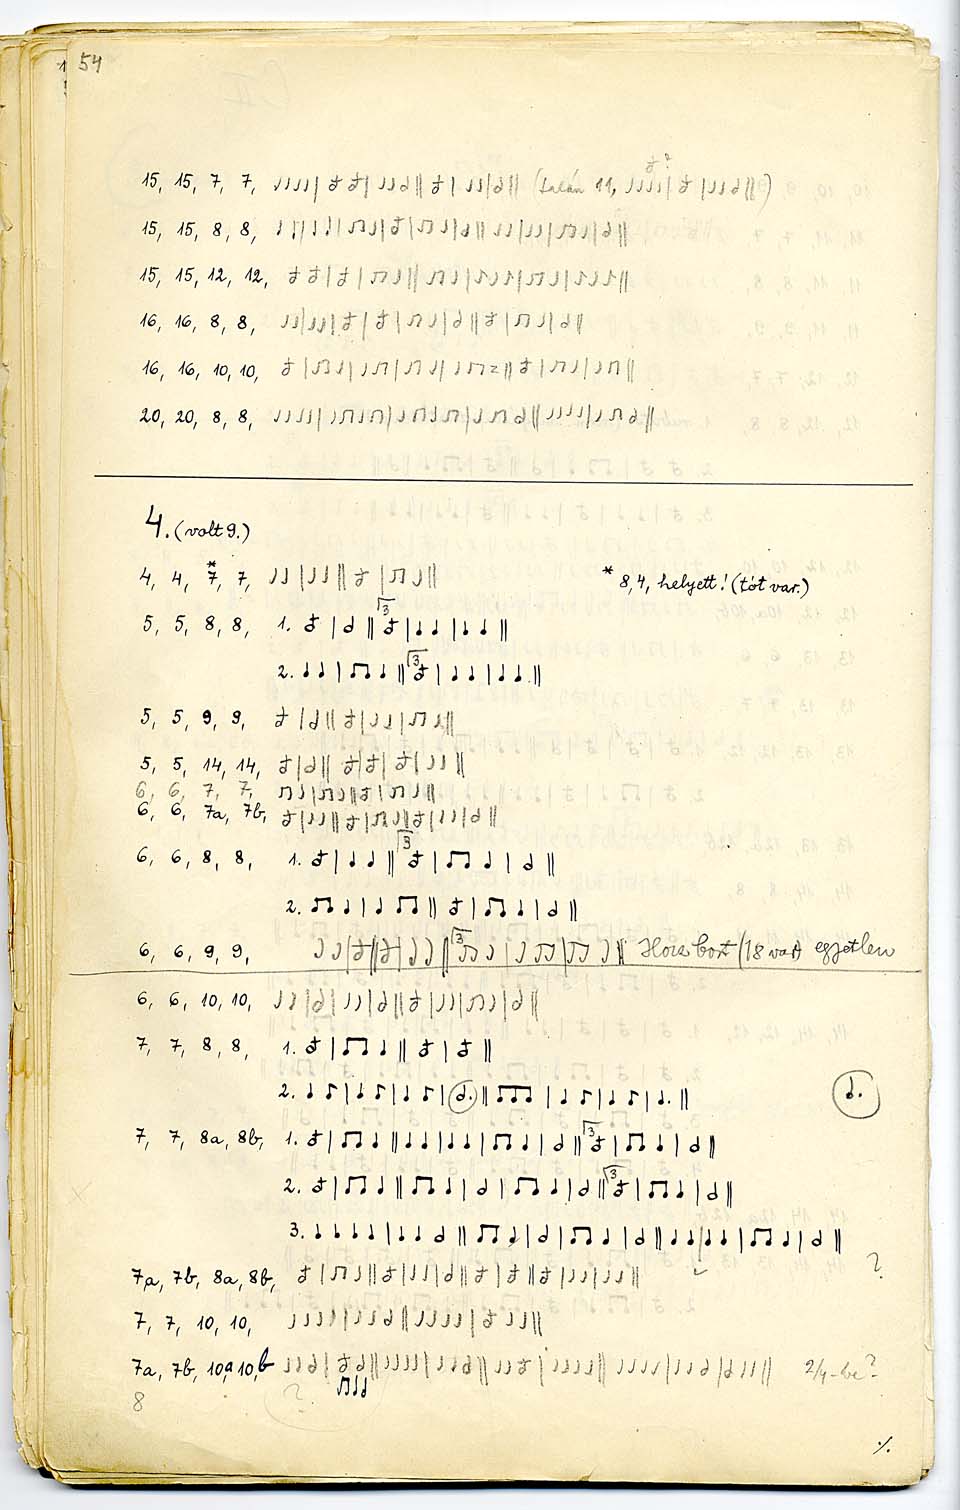 54
15, 15, 7, 7, (talán 11,
15, 15, 8, 8,
15, 15, 12, 12,
16, 16, 8, 8,
16, 16, 10, 10,
20, 20, 8, 8,
4. (volt 9.)
4, 4, *7, 7, * 8, 4, helyett! (tót var.)
5, 5, 8, 8, 1.
2.
5, 5, 9, 9,
5, 5, 14, 14,
6, 6, 7, 7,
6, 6, 7a, 7b,
6, 6, 8, 8, 1.
2.
6, 6, 9, 9, egyetlen
6, 6, 10, 10,
7, 7, 8, 8, 1.
2.
7, 7, 8a, 8b, 1.
2.
3.
7a, 7b, 8a, 8b, ?
7, 7, 10, 10,
7a, 7b, 10a, 10b 2/4-be?
8 ?
./.